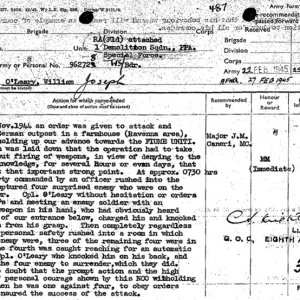 487
Army Form
Brigade
Recommendation
passed forward
RA(Fld) attached
Unit 1 Demolition Sqdn., PPA.
Special Force.
22 FEB 1945
Army or Personal No. 952729
W/Bdr.
27 FEB 1945
O'Leary, William Joseph
Action for which commended
Recommended by
Honour or Reward
Nov.1944 an order was given to attack and
German outpost in a farmhouse (Ravenna area),
holding up our advance towards the FIUME UNITI.
n was laid down that the operation had to take
out firing of weapons, in view of denying to the
knowledge, for several hours or even days, that
that important strong point. At approx. 0730
rty commanded by an officer rushed into the
aptured four surprised enemy who were on the
or. Cpl. O'Leary without hesitation or orders
s and meeting an enemy soldier with an
eapon in his hand, who had obviously heard
our entrance below, charged him and knocked
from his grasp. Then completely regardless
personal safety rushed into a room in which
enemy were, three of the remaining four were in
e fourth was caught reaching for an automatic
pl. O'Leary who knocked him on his back, and
the four enemy to surrender, which they did.
no doubt that the prompt action and the high
personal courage shown by this NCO withholding
hen he was one against four, to obey orders
nsured the success of the attack.
Major J.M.
Caneri, MC.
MM
Immediate)
G. O. C. EIGHTH A